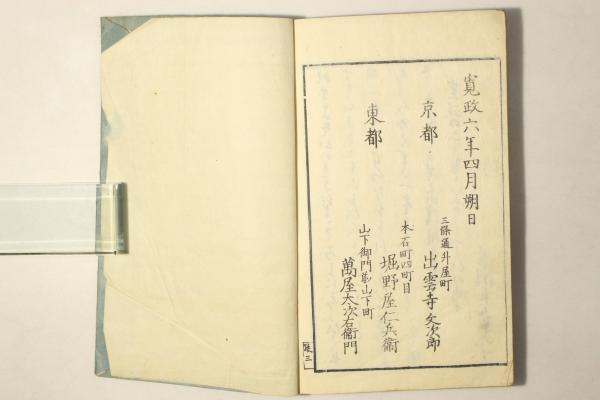 寛政六年四月朔日
京都
三條通升屋町
出雲寺文次郎
東都
本石町四町目
堀野屋仁兵衞
山下御門前山下町
萬屋太次右衞門